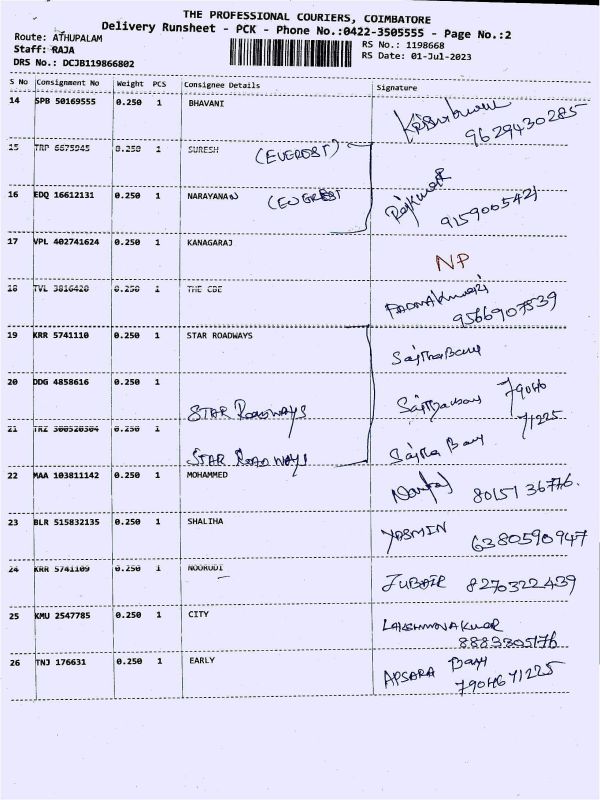 THE PROFESSIONAL COURIERS, COIMBATORE
Delivery Runsheet - PCK - Phone No.:0422-3505555 - Page No.:2
Route: ATHUPALAM
Staff: RAJA
DRS No.: DCJB119866802
RS No.: 1198668
RS Date: 01-Jul-2023
S No Consignment No Weight PCS Consignee Details Signature
14 SPB 50169555 0.250 1 BHAVANI
9629430285
15 TRP 6675945 0.250 1 SURESH (EVEREST)
16 EDQ 16612131 0.250 1 NARAYANAN (EVEREST Rajkumar
9159005421
17 VPL 402741624 0.250 1 KANAGARAJ NP
18 TVL 3816420 0.250 1 THE CBE
9566907539
19 KRR 5741110 0.250 1 STAR ROADWAYS
20 DDG 4858616 0.250 1 79046
STAR ROADWAYS 71225
21 TRZ 300520304 0.250 1
STAR ROADWAYS
22 MAA 103811142 0.250 1 MOHAMMED 80151 36776.
23 BLR 515832135 0.250 1 SHALIHA YASMIN 6380590947
24 KRR 5741109 0.250 1 NOORUDI JUBAIR 8270322439
25 KMU 2547785 0.250 1 CITY
8883805176
26 TNJ 176631 0.250 1 EARLY APSARA Bay
7904671225